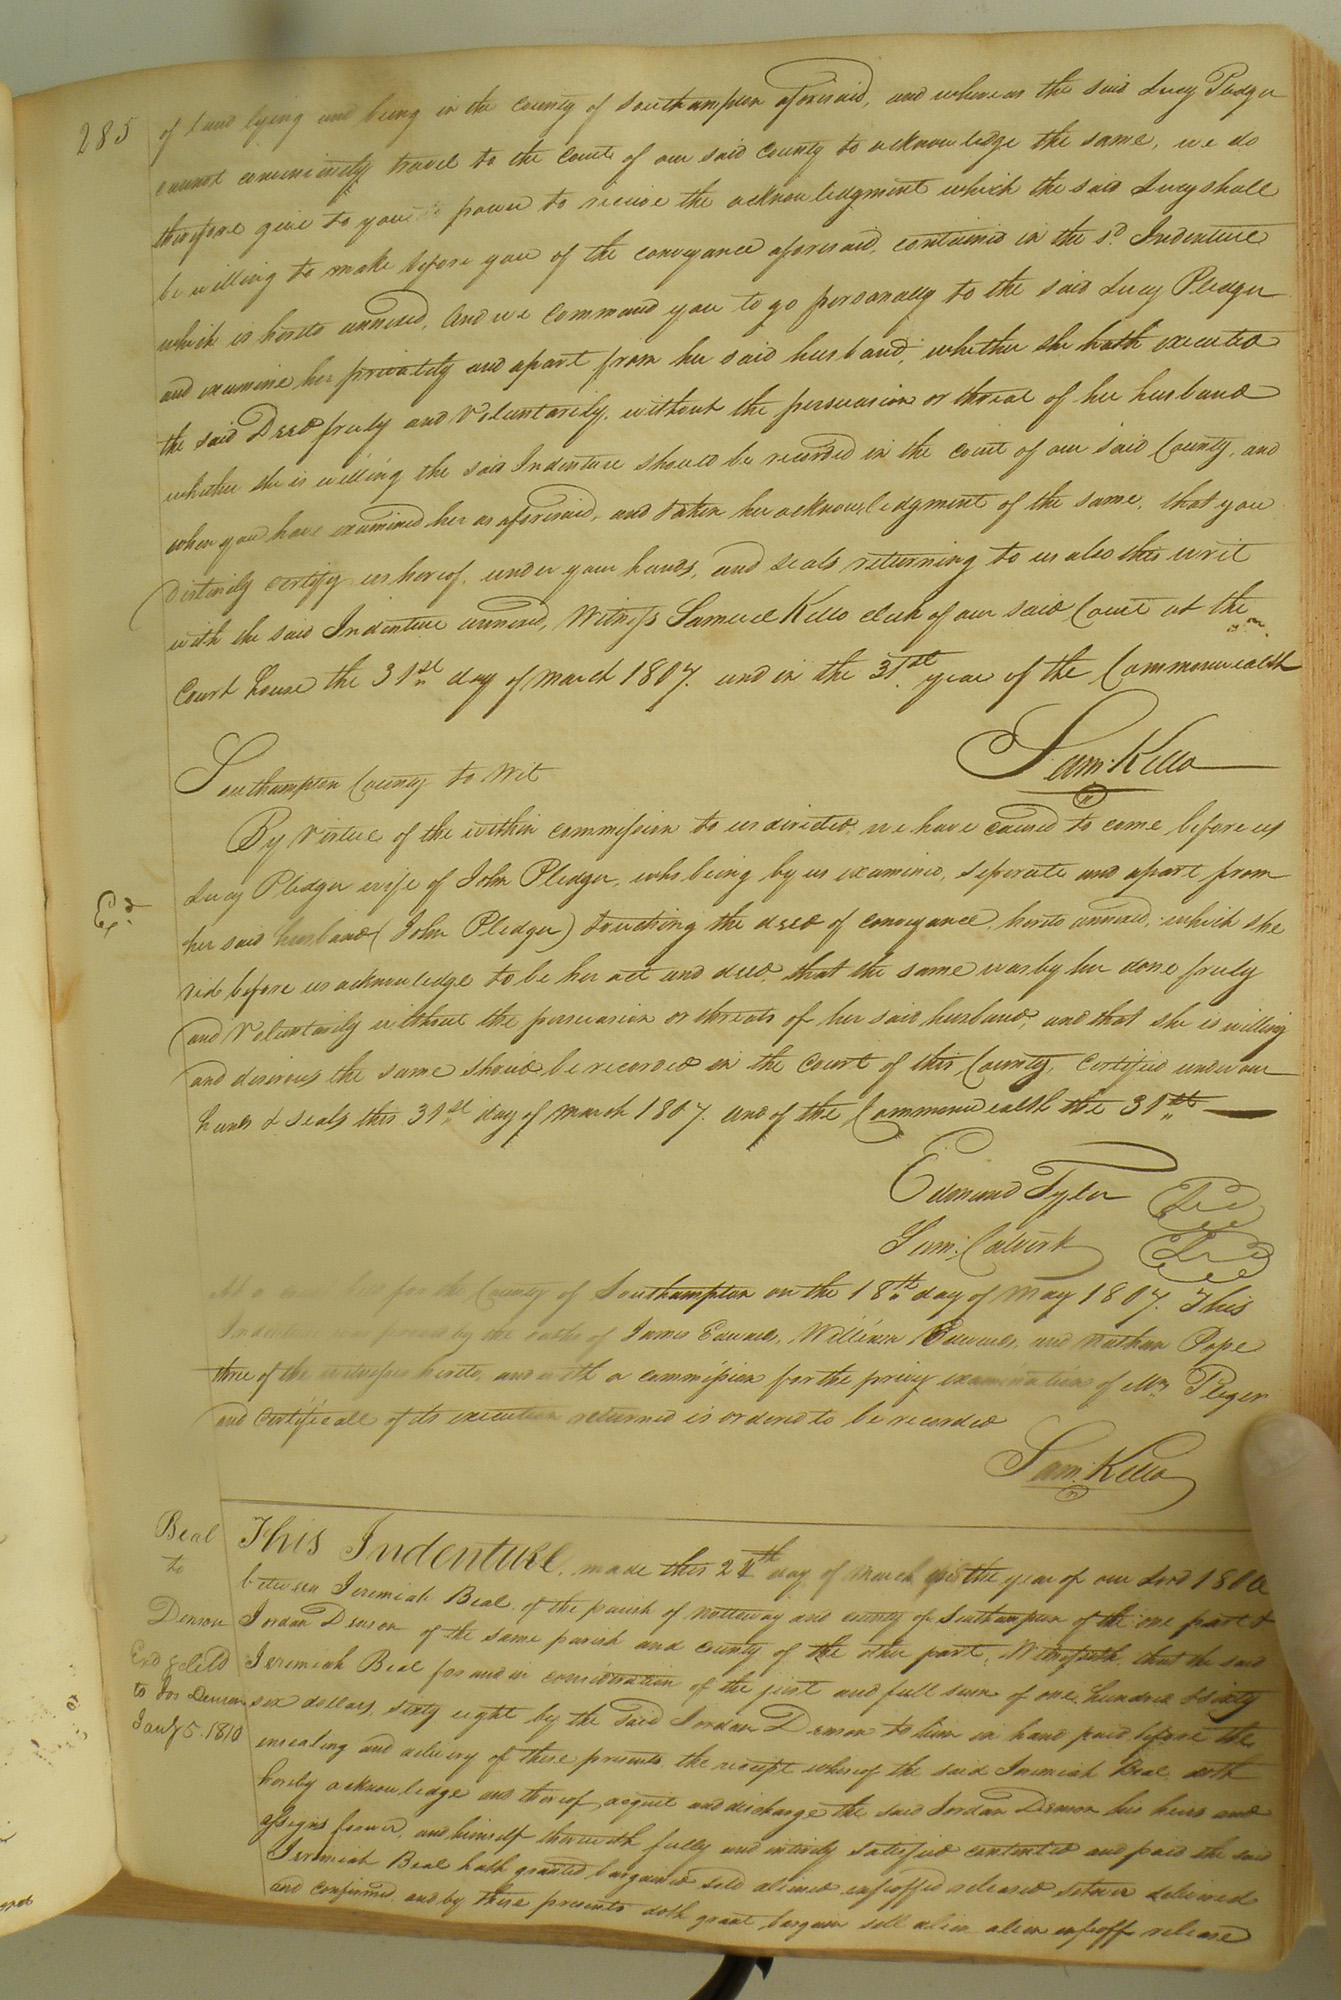 285
of land lying and being in the County of Southampton aforesaid, and whereas the said Lucy Pledger
cannot conveniently travel to the Court of our said County to acknowledge the same, we do
therefore give to you power to receive the acknowledgment which the said Lucy shall
be willing to make before you of the conveyance aforesaid, contained in the sd. Indenture
which is hereto annexed, And we Command you to go personally to the said Lucy Pledger
and examine her privately and apart from her said husband, whether she hath executed
the said Deed freely and Voluntarily, without the persuasion or threat of her husband
whether she is willing the said Indenture should be recorded in the Court of our said County, and
when you have examined her as aforesaid, and taken her acknowledgment of the same, that you
distinctly certify us hereof, under your hands, and seals returning to us also this writ
with the said Indenture annexed, Witness Samuel Kello clerk of our said Court at the
Court house the 31st day of March 1807. and in the 31st year of the Commonwealth
Sam: Kello
Southampton County to Wit
By Virtue of the within commission to us directed, we have caused to come before us
Lucy Pledger wife of John Pledger, who being by us examined, seperate and apart from
Exd.
her said husband (John Pledger) touching the deed of conveyance, hereto annexed, which she
did before us acknowledge to be her act and deed, that the same was by her done freely
and Voluntarily without the persuasion or threats of her said husband, and that she is willing
and desirous the same should be recorded in the Court of this County, Certified under our
hands & seals this 31st day of March 1807. and of the Commonwealth the 31st
Edmund Tyler
Sam: Calvert
At a Court held for the County of Southampton on the 18th day of May 1807. This
Indenture was proved by the oaths of James Edwards, William Edwards, and Nathan Pope
three of the witnesses hereto, and with a commission for the privy examination of Mrs Pleger
and Certificate of its execution returned is ordered to be recorded
Sam: Kello
Beal
to
Denson
Exd & deld
to Jos Denson
Jany 5. 1810
This Indenture, made this 24th day of March the year of our Lord 180
between Jeremiah Beal of the parish of Nottoway and county of Southampton of the one part &
Jordan Denson of the same parish and county of the other part, Witnesseth, that the said
Jeremiah Beal for and in consideration of the just and full sum of one hundred & sixty
six dollars, sixty eight by the said Jordan Denson to him in hand paid before the
ensealing and delivery of these presents, the receipt whereof the said Jeremiah Beal, doth
hereby acknowledge and thereof acquit and discharge the said Jordan Denson his heirs and
assigns forever, and himself therewith fully and intirely satisfied contented and paid the said
Jeremiah Beal hath granted bargained sold aliened enfeoffed released delivered
and confirmed, and by these presents doth grant bargain sell alien alien enfeoff release